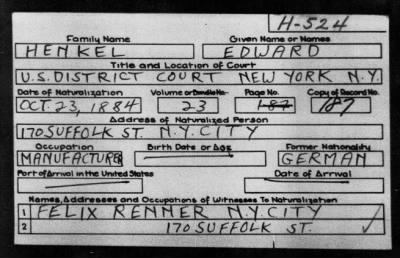 H-524
Family Name Given Name or Names
HENKEL EDWARD
Title and Location of Court
U.S. DISTRICT COURT NEW YORK N.Y.
Date of Naturalization Volume or Bundle No. Page No. Copy of Record No.
OCT. 23, 1884 23 187 187
Address of Naturalized Person
170 SUFFOLK ST. N.Y. CITY
Occupation Birth Date or Age Former Nationality
MANUFACTURER GERMAN
Port of Arrival in the United States Date of Arrival
Names, Addresses and Occupations of Witnesses To Naturalization
1 FELIX RENNER N.Y. CITY
2 170 SUFFOLK ST.